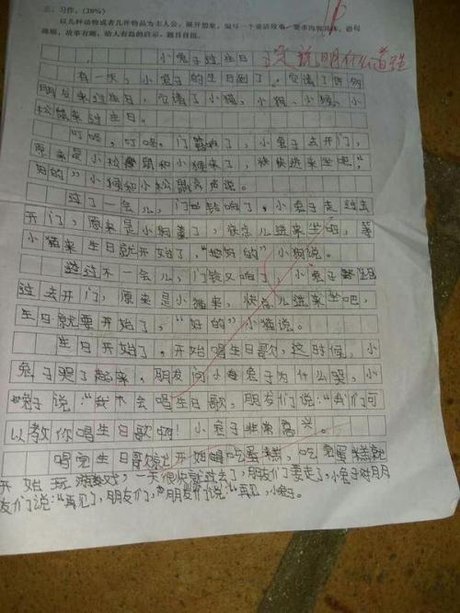 三、习作。(20%)
以几种动物或者几件物品为主人公，展开想象，编写一个童话故事。要求内容具体，语句
通顺，故事有趣，给人有益的启示。题目自拟。
小兔子过生日
没说明什么道理
有一次，小兔子的生日到了，它请了许多
朋友来过生日，它请了小猫，小狗，小猴，小
松鼠来过生日。
叮咚，叮咚，门铃响了，小兔子去开门，
原来是小松鼠和小猴来了，快快进来坐吧，”
好的”小猴和小松鼠说。
过了一会儿，门铃响了，小兔子走过去
开门，原来是小狗来了，快点儿进来坐吧，等
小猫来生日就开始了，“好的”小狗说。
过不一会儿，门铃又响了，小兔子
过去开门，原来是小猫来，快点儿进来坐吧，
生日就要开始了，“好的”小猫说。
生日开始了，开始唱生日歌，这时候，小
兔子哭了起来，朋友问小兔子为什么哭，小
兔子说：“我不会唱生日歌，朋友们说：“我们可
以教你唱生日歌啊！小兔子非常高兴。
唱完生日歌就开始吃蛋糕，吃完蛋糕就
开始玩游戏，一天很快就过去了，朋友们要走了，小兔子对朋
友们说：“再见了，朋友们，”朋友们说“再见，小兔子。